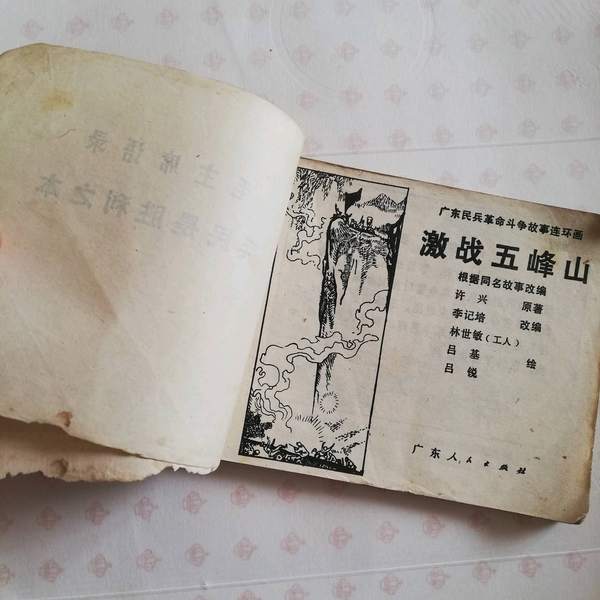 毛主席语录
兵民是胜利之本
广东民兵革命斗争故事连环画
激战五峰山
根据同名故事改编
许兴 原著
李记培 改编
林世敏(工人)
吕基 绘
吕锐
广东人民出版社